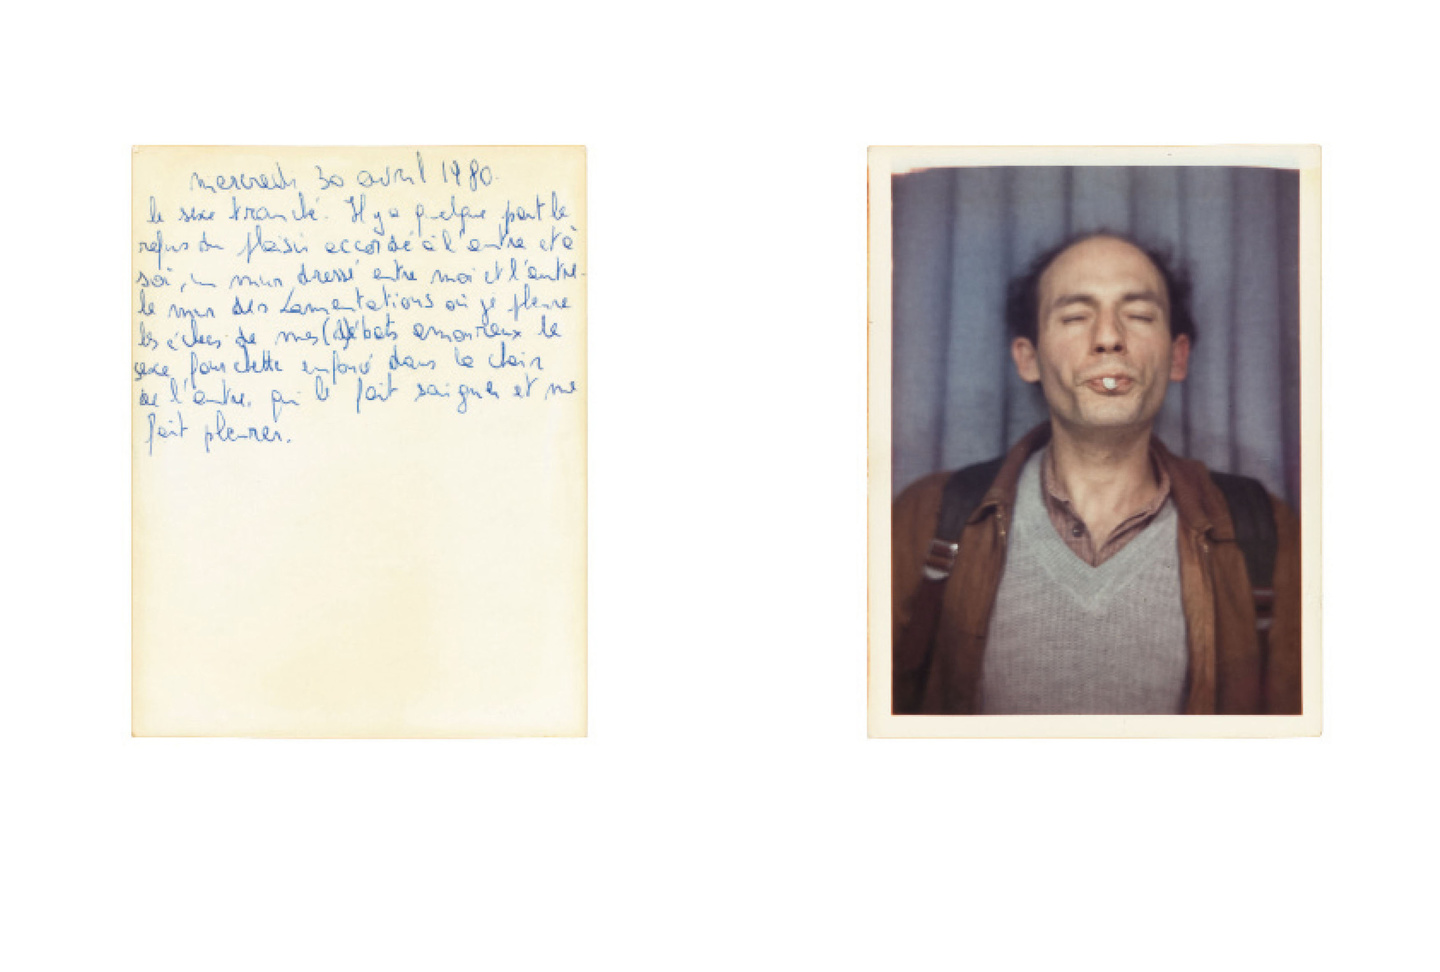 mercredi 30 avril 1980.
le sexe tranché. Il y a quelque part le
refus du plaisir accordé à l'autre et à
soi, un mur dressé entre moi et l'autre.
le mur des Lamentations où je pleure
les échecs de mes (d)ébats amoureux le
sexe fourchette enfoncé dans la chair
de l'autre. qui le fait saigner et me
fait pleurer.